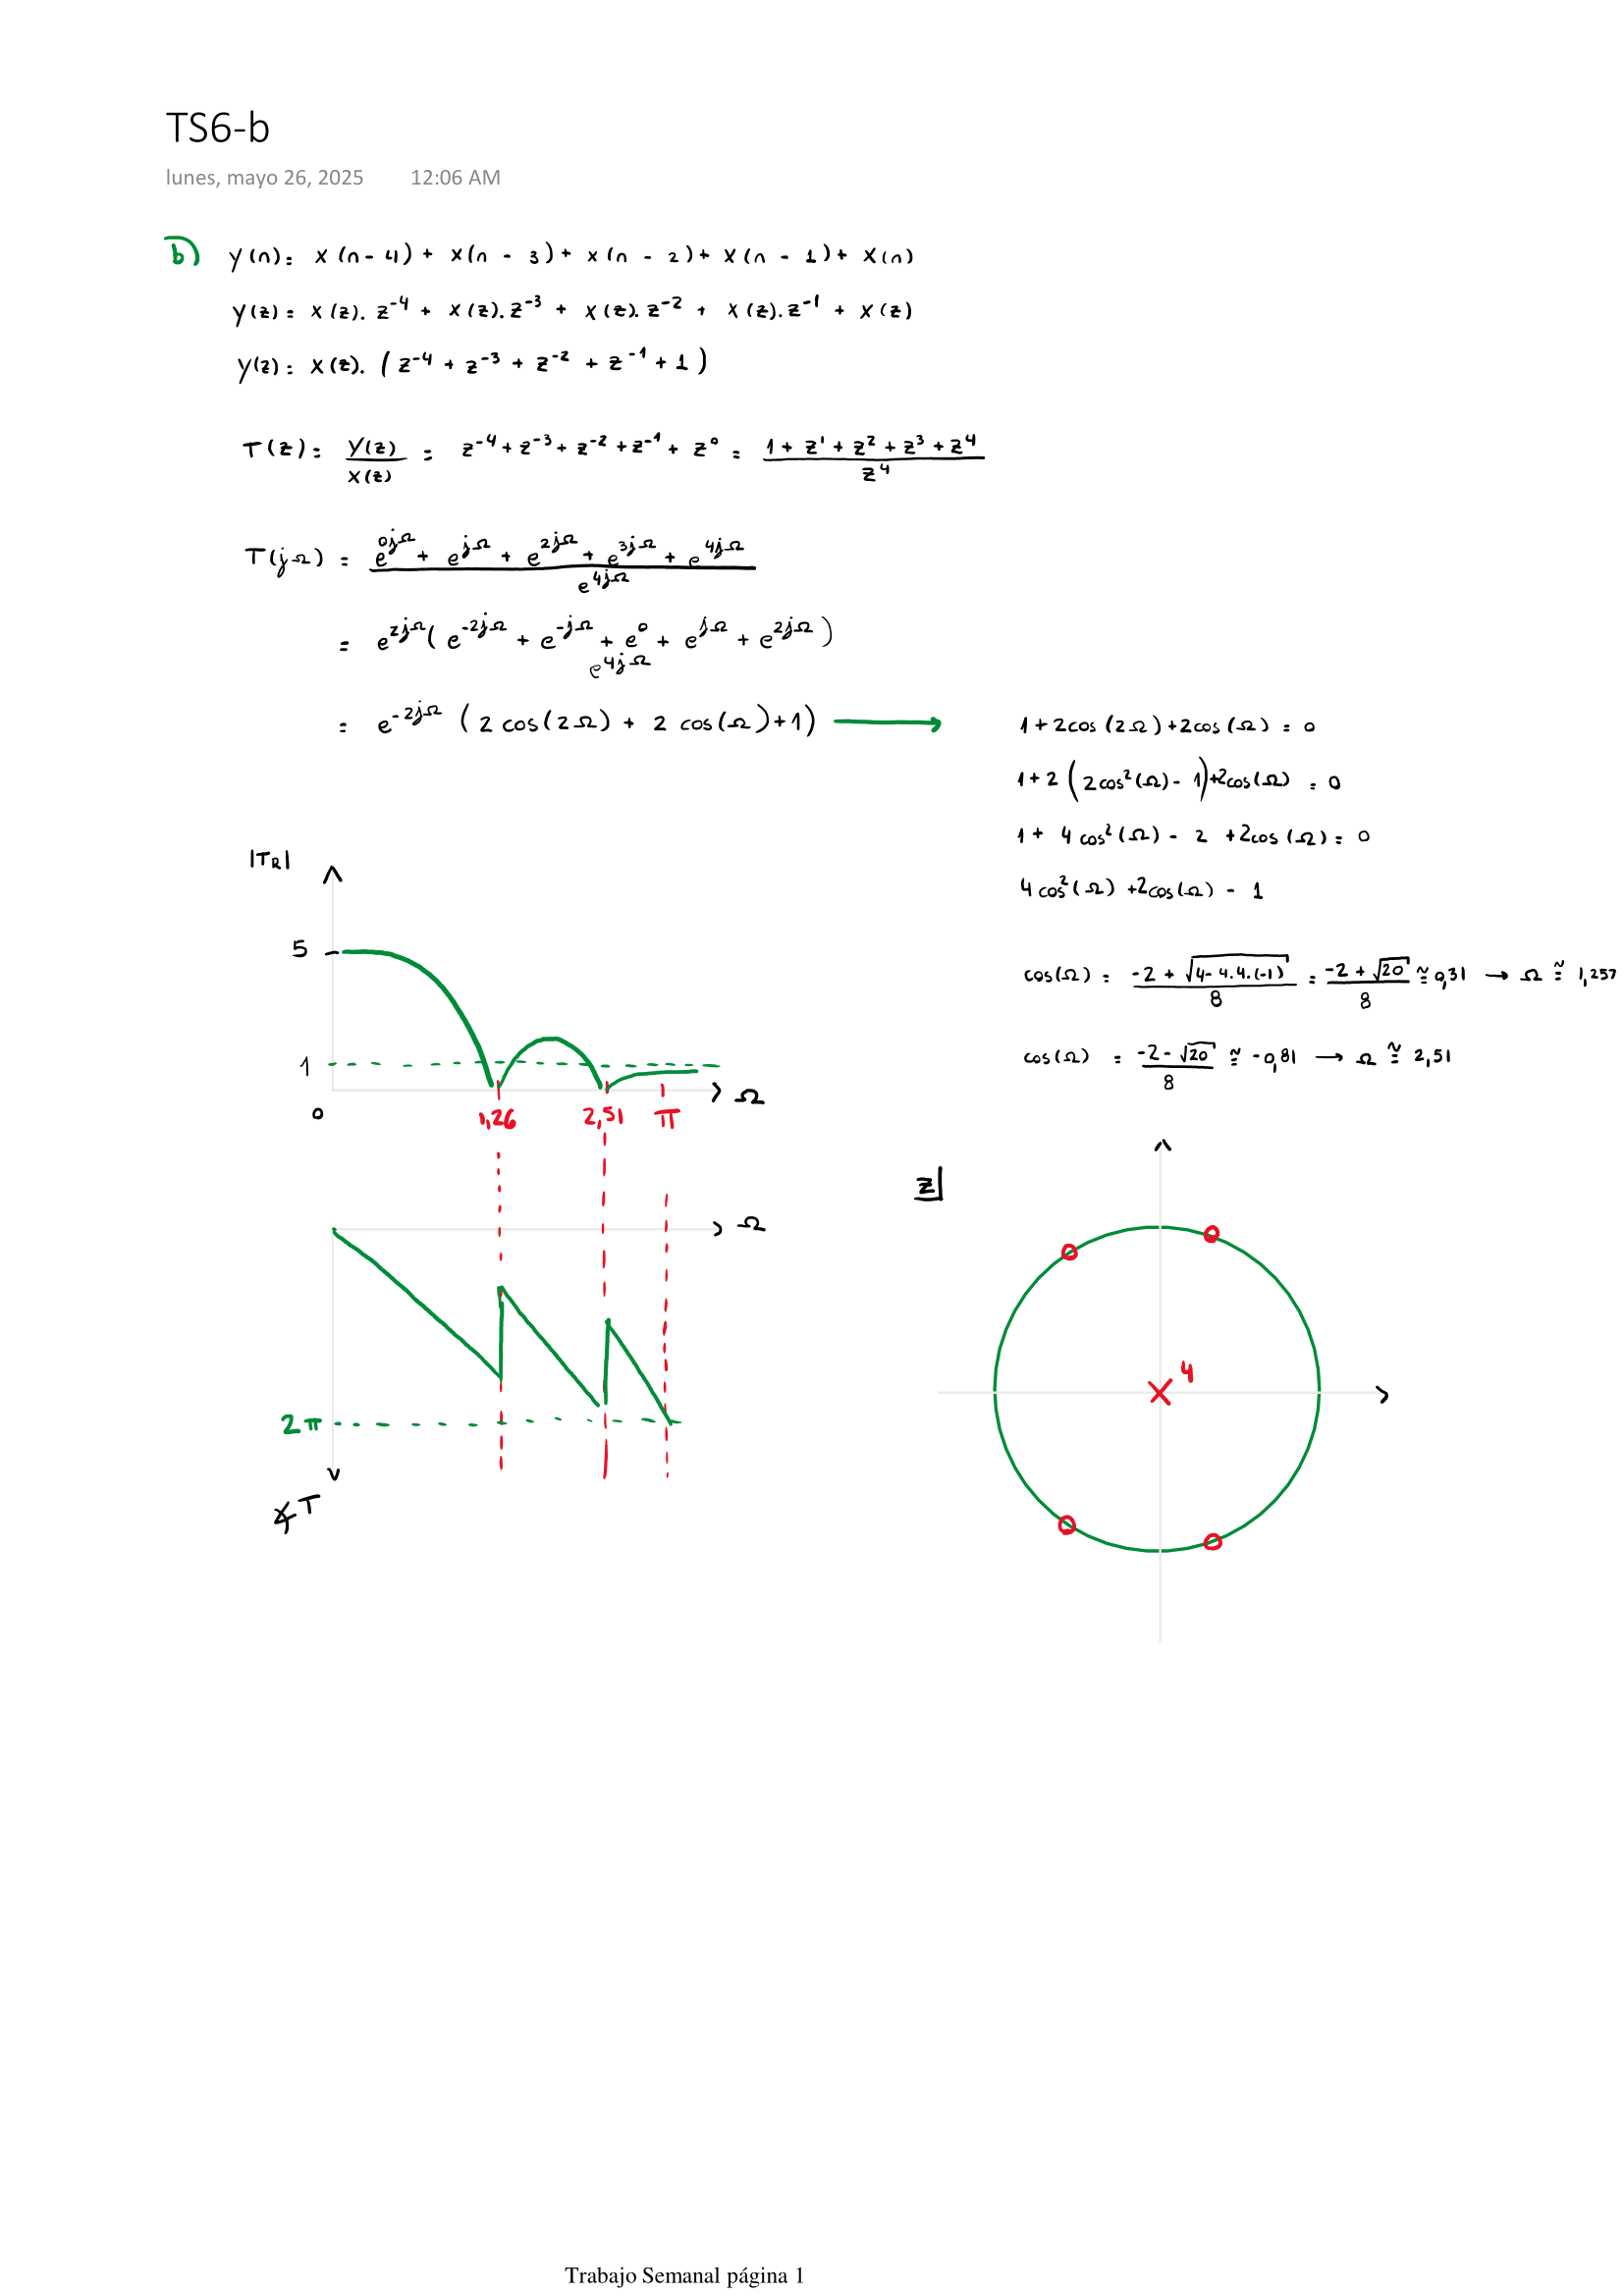 TS6-b
lunes, mayo 26, 2025 12:06 AM
b) y(n) = x(n-4) + x(n-3) + x(n-2) + x(n-1) + x(n)
y(z) = x(z).z⁻⁴ + x(z).z⁻³ + x(z).z⁻² + x(z).z⁻¹ + x(z)
y(z) = x(z).(z⁻⁴ + z⁻³ + z⁻² + z⁻¹ + 1)
T(z) = y(z)/x(z) = z⁻⁴ + z⁻³ + z⁻² + z⁻¹ + z⁰ = (1 + z¹ + z² + z³ + z⁴)/z⁴
T(jΩ) = (e^{0jΩ} + e^{jΩ} + e^{2jΩ} + e^{3jΩ} + e^{4jΩ})/e^{4jΩ}
= e^{2jΩ}(e^{-2jΩ} + e^{-jΩ} + e⁰ + e^{jΩ} + e^{2jΩ})
e^{4jΩ}
= e^{-2jΩ} (2 cos(2Ω) + 2 cos(Ω)+1) →
1+2cos(2Ω)+2cos(Ω) = 0
1+2(2cos²(Ω)-1)+2cos(Ω) = 0
1+ 4cos²(Ω) - 2 +2cos(Ω) = 0
4cos²(Ω) +2cos(Ω) - 1
cos(Ω) = (-2 + √(4-4.4.(-1)))/8 = (-2 + √20)/8 ≅ 0,31 → Ω ≅ 1,257
cos(Ω) = (-2-√20)/8 ≅ -0,81 → Ω ≅ 2,51
|TR|
5
1
0
1,26 2,51 π
Ω
Ω
2π
∡T
z|
4
Trabajo Semanal página 1